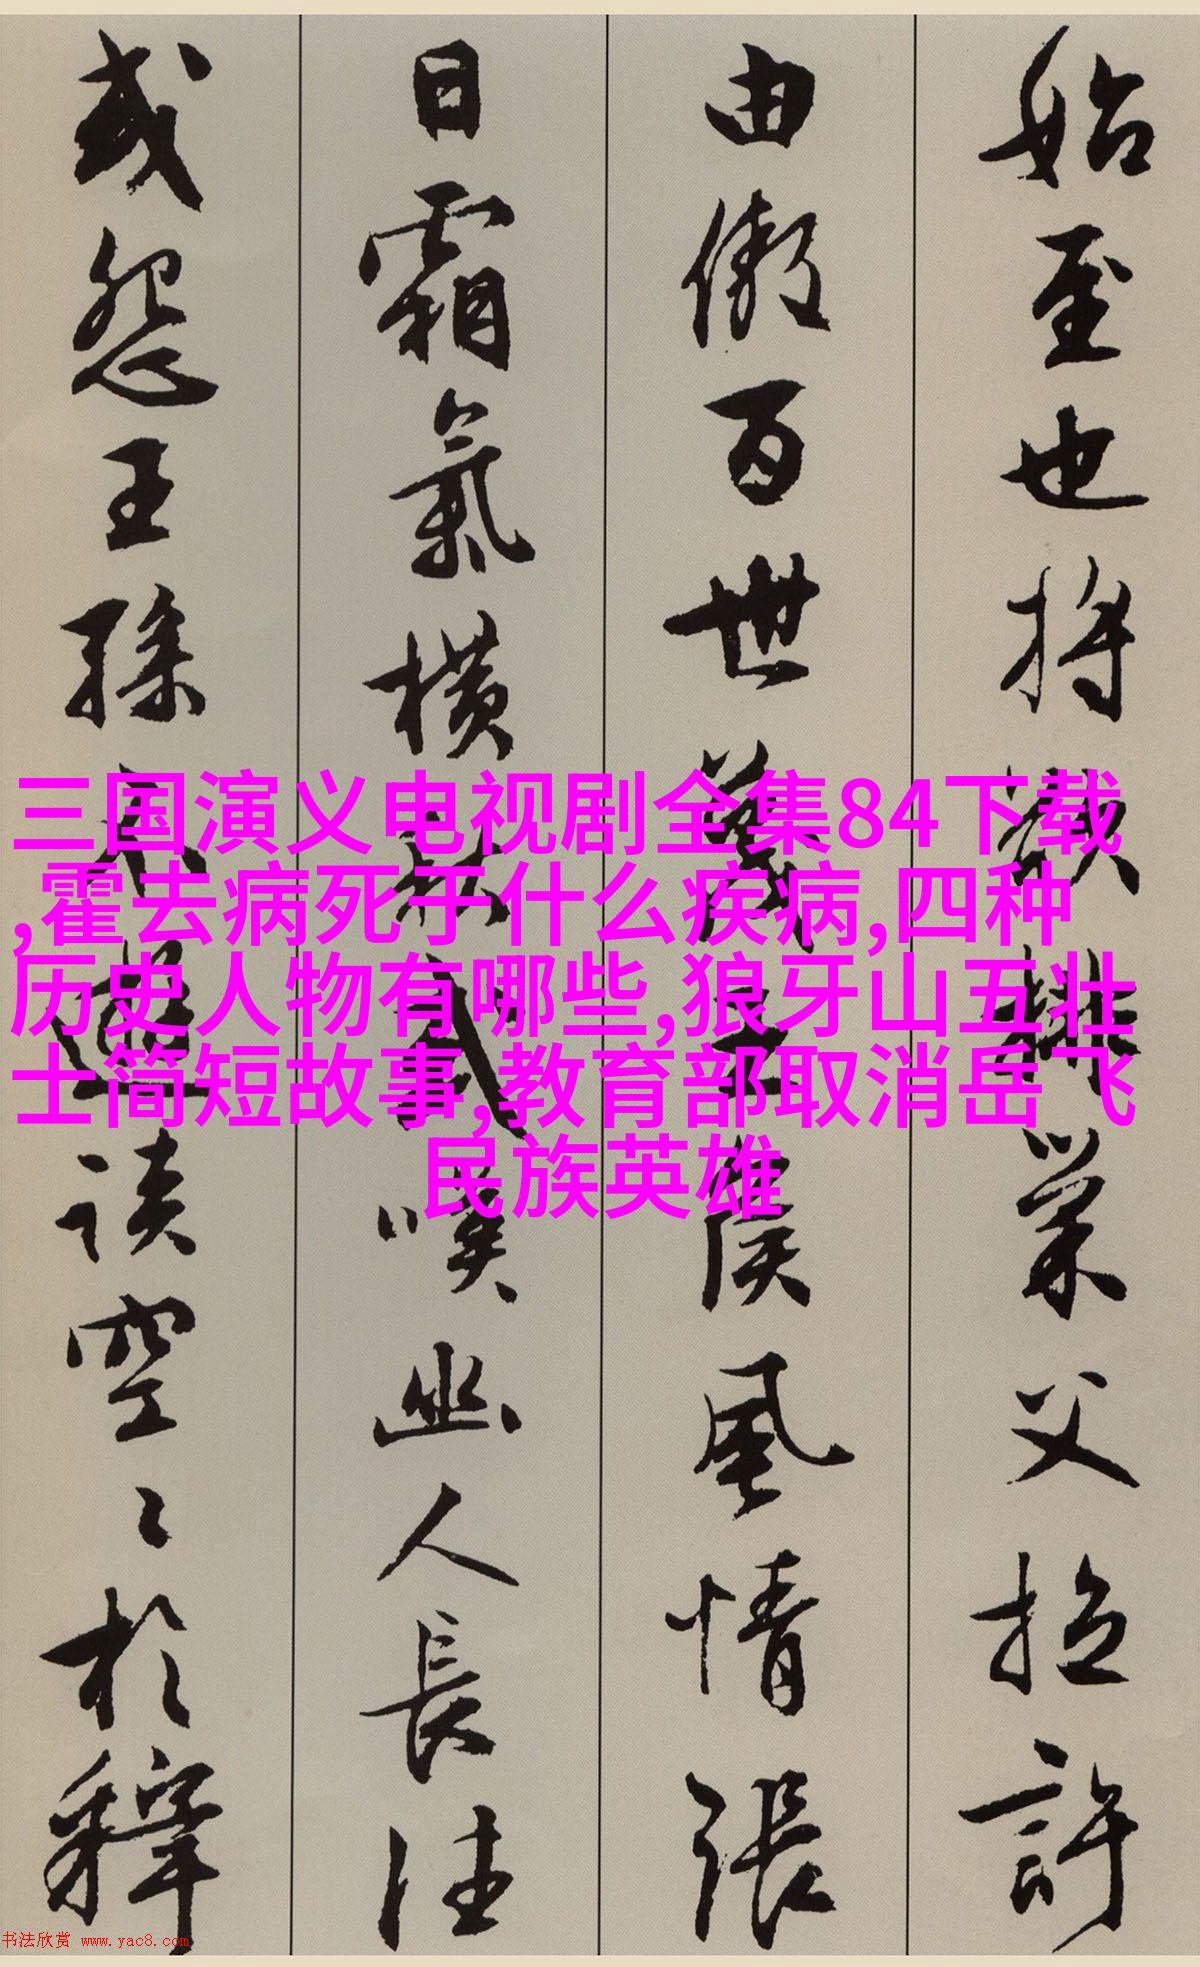 始至也將欲排巢父拉許
由傲百世蔑王侯風情張
日霜氣橫秋或嘆幽人長往
或怨王孫不遊談空〻於釋
三国演义电视剧全集84下载
,霍去病死于什么疾病,四种
历史人物有哪些,狼牙山五壮
士简短故事,教育部取消岳飞
民族英雄
书法欣赏 www.yac8.com